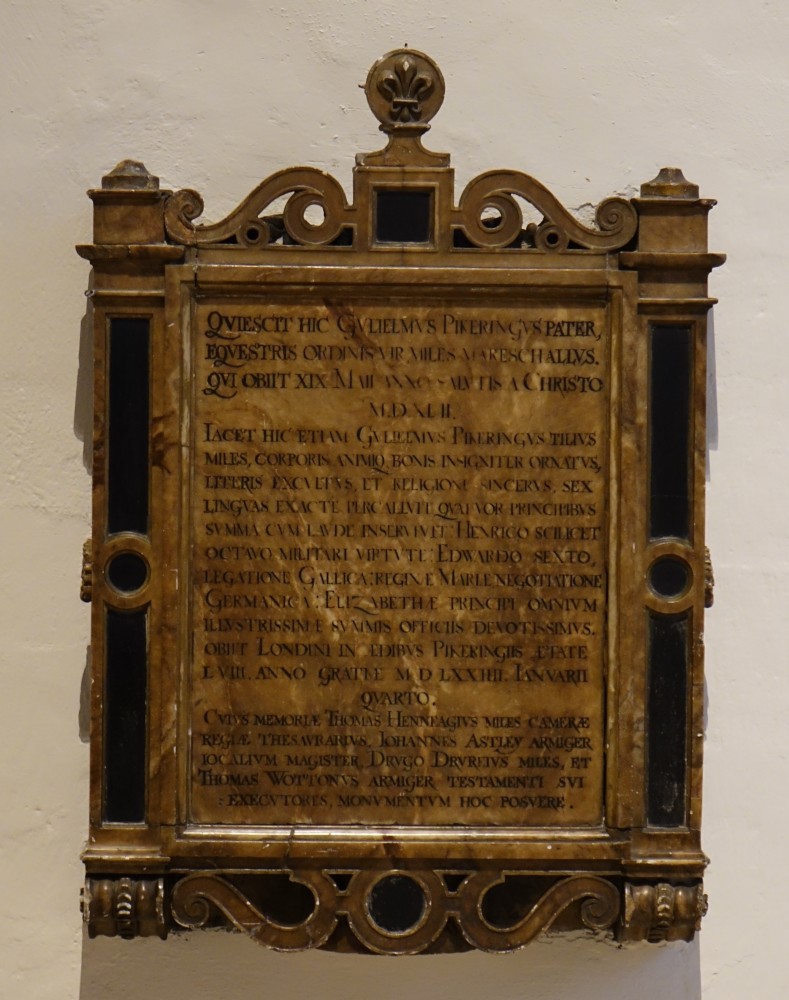 QVIESCIT HIC GVLIELMVS PIKERINGVS PATER,
EQVESTRIS ORDINIS VIR, MILES MARESCHALLVS.
QVI OBIIT XIX MAII ANNO SALVTIS A CHRISTO
M.D.XLII.
IACET HIC ETIAM GVLIELMVS PIKERINGVS FILIVS
MILES, CORPORIS ANIMIQ, BONIS INSIGNITER ORNATVS,
LITERIS EXCVLTVS, ET RELIGIONE SINCERVS. SEX
LINGVAS EXACTE PERCALLVIT. QVATVOR PRINCIPIBVS
SVMMA CVM LAVDE INSERVIVIT: HENRICO SCILICET
OCTAVO MILITARI VIRTVTE: EDWARDO SEXTO,
LEGATIONE GALLICA: REGINÆ MARIÆ NEGOTIATIONE
GERMANICA: ELIZABETHÆ PRINCIPI OMNIVM
ILLVSTRISSIMÆ SVMMIS OFFICIIS DEVOTISSIMVS.
OBIIT LONDINI IN ÆDIBVS PIKERINGIIS ÆTATE
LVIII. ANNO GRATIÆ M D LXXIIII. IANVARII
QVARTO.
CVIVS MEMORIÆ THOMAS HENNEAGIVS MILES CAMERÆ
REGIÆ THESAVRARIVS, IOHANNES ASTLEY ARMIGER
IOCALIVM MAGISTER, DRVGO DRVREIVS MILES, ET
THOMAS WOTTONVS ARMIGER TESTAMENTI SVI
: EXECVTORES, MONVMENTVM HOC POSVERE.